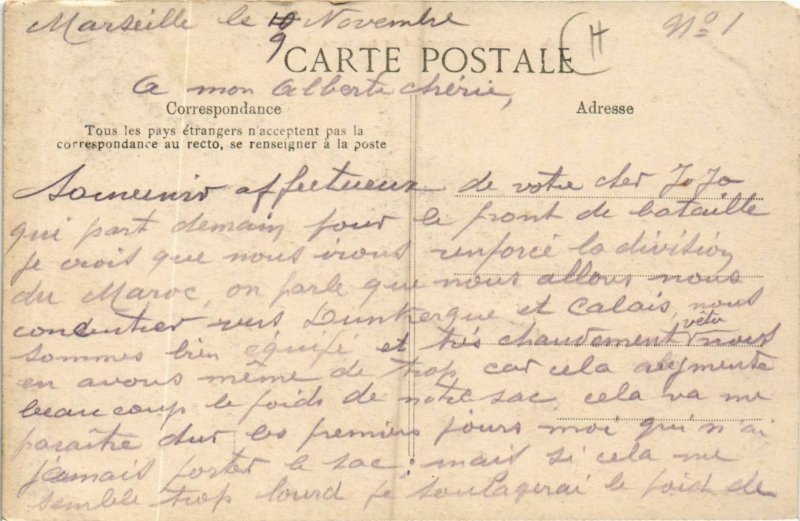 Marseille le 10 Novembre
9
H
No 1
CARTE POSTALE
A mon Alberte chérie,
Correspondance
Adresse
Tous les pays étrangers n'acceptent pas la
correspondance au recto, se renseigner à la poste
Souvenir affectueux de votre cher JoJo
qui part demain pour le front de bataille
je crois que nous irons renforcé la division
du Maroc, on parle que nous allons nous
concentrer vers Dunkerque et Calais, nous
sommes bien équipé et très chaudement vêtu nous
en avons même de trop car cela augmente
beaucoup le poids de notre sac cela va me
paraître dur les premiers jours moi qui n'ai
jamais porter le sac. mais si cela me
semble trop lourd je soulagerai le poid de